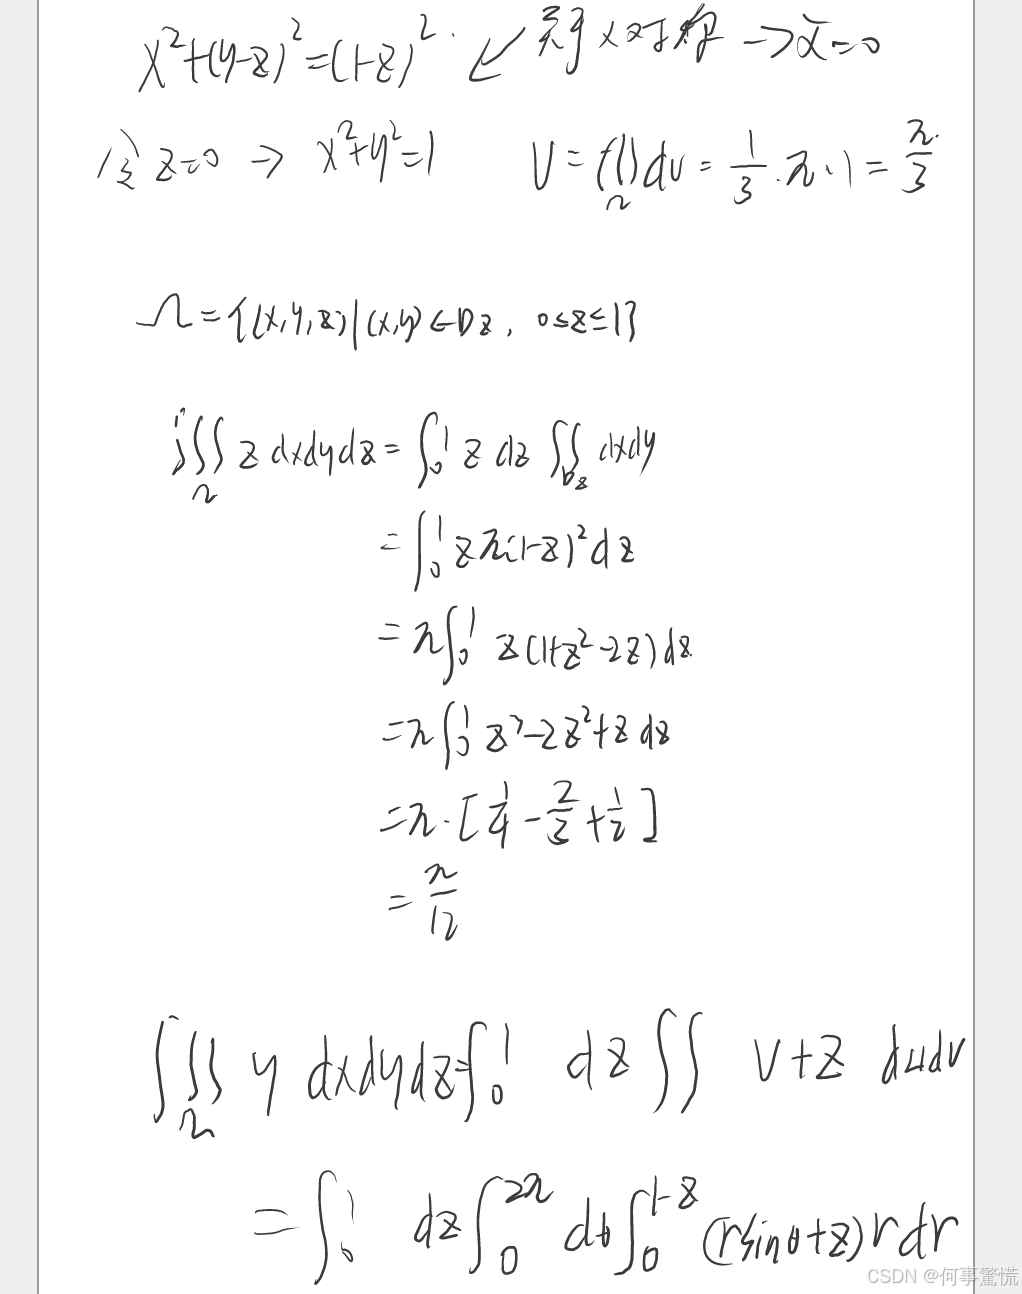 x²+(y-z)²=(1-z)². ↙ 关于x对称 → x̄=0
令 z=0 → x²+y²=1 V=∭_Ω dv = 1/3 · π · 1 = π/3
Ω={(x,y,z)|(x,y)∈Dz, 0≤z≤1}
∭_Ω z dxdydz = ∫₀¹ z dz ∬_Dz dxdy
= ∫₀¹ zπ(1-z)² dz
= π∫₀¹ z(1+z²-2z) dz
= π∫₀¹ z³-2z²+z dz
= π·[1/4 - 2/3 + 1/2]
= π/12
∭_Ω y dxdydz = ∫₀¹ dz ∬ v+z dudv
= ∫₀¹ dz ∫₀^2π dθ ∫₀^1-z (rsinθ+z) r dr
CSDN @何事驚慌